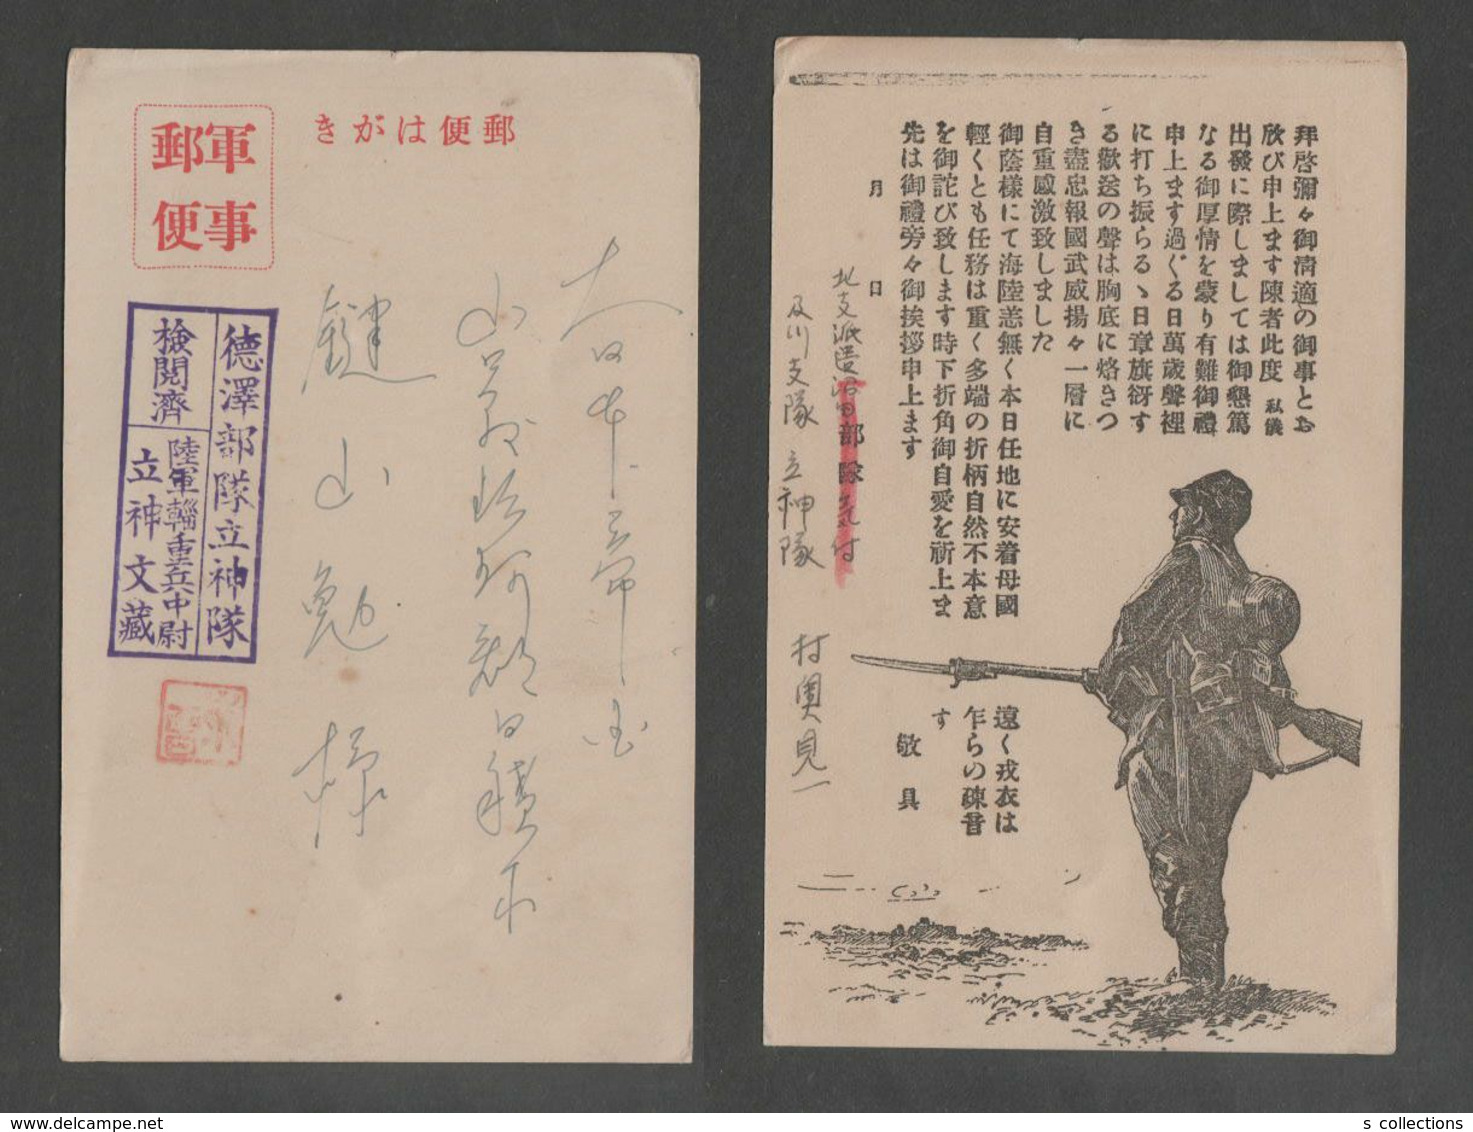 郵便はがき
軍事
郵便
德澤部隊立神隊
檢閲濟
陸軍輜重兵中尉
立神文藏
大日本帝国
山形縣
鍵山勉様
拜啓彌々御淸適の御事とお
欣び申上ます陳者此度 私儀
出發に際しましては御懇篤
なる御厚情を蒙り有難御禮
申上ます過ぐる日萬歳聲裡
に打ち振らるゝ日章旗衍す
る歡送の聲は胸底に烙きつ
き盡忠報國武威揚々一層に
自重感激致しました
御蔭樣にて海陸恙無く本日任地に安着母國
遠く戎衣は
輕くとも任務は重く多端の折柄自然不本意
乍らの疎音
を御詫び致します時下折角御自愛を祈上ま
す
先は御禮旁々御挨拶申上ます
敬具
月 日
北支派遣沼田部隊気付
及川支隊立神隊
村奥見一
s collections